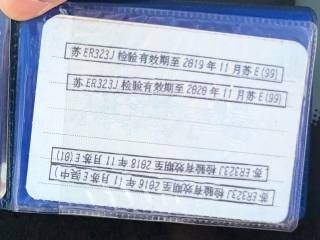 苏ER323J 检验有效期至 2019 年 11 月苏E(99)
苏ER323J 检验有效期至 2020 年 11 月苏E(99)
苏ER323J 检验有效期至 2016 年 11 月苏E吴中
苏ER323J 检验有效期至 2018 年 11 月苏E(01)